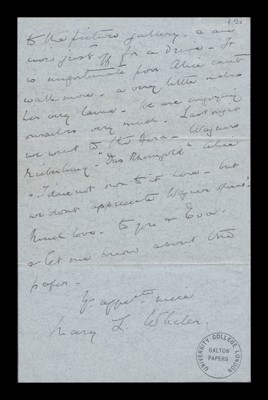 to the picture gallery & are
now just off for a Drive. It
is unfortunate poor Alice can't
walk more. a very little makes
her very lame. We are enjoying
ourselves very much. Last night
we went to the Opera - Wagner's
"Das Rheingold" Alice
& I does not own to it here - but
we don't appreciate Wagner
Much love to you & Eva.
& let me know about the
paper.
Yr affecte niece
Mary L.
UNIVERSITY COLLEGE LONDON
GALTON
PAPERS